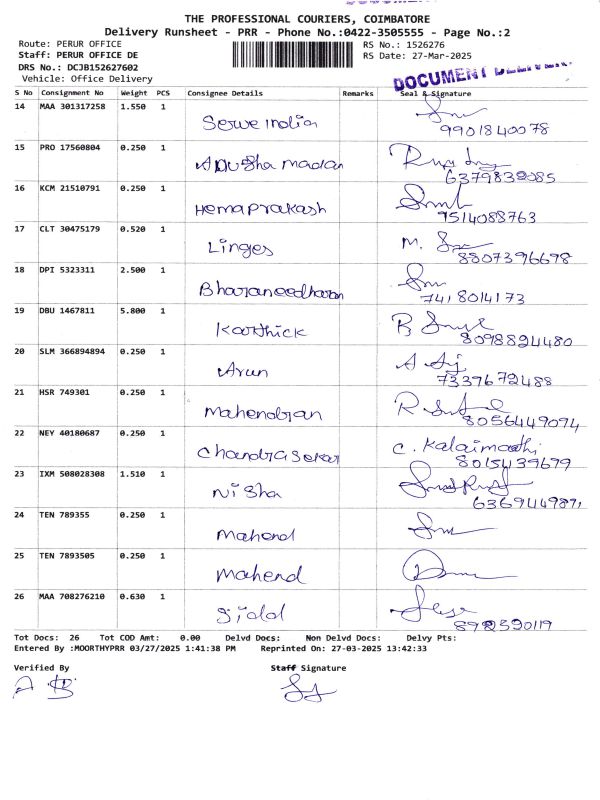 THE PROFESSIONAL COURIERS, COIMBATORE
Delivery Runsheet - PRR - Phone No.:0422-3505555 - Page No.:2
Route: PERUR OFFICE RS No.: 1526276
Staff: PERUR OFFICE DE RS Date: 27-Mar-2025
DRS No.: DCJB152627602
Vehicle: Office Delivery
DOCUMENT
S No Consignment No Weight PCS Consignee Details Remarks Seal & Signature
14 MAA 301317258 1.550 1 Serwe India
9901840078
15 PRO 17560804 0.250 1 Anusha madan
6379839085
16 KCM 21510791 0.250 1 Hemaprakash
9514088763
17 CLT 30475179 0.520 1 Linges M.
8807396698
18 DPI 5323311 2.500 1 Bharaneedharan
7418014173
19 DBU 1467811 5.800 1 Karthick
8098894480
20 SLM 366894894 0.250 1 Arun
7339672488
21 HSR 749301 0.250 1 Mahendran
8056449094
22 NEY 40180687 0.250 1 Chandrasekar C. Kalaimathi
8015439679
23 IXM 508028308 1.510 1 Nisha
24 TEN 789355 0.250 1 Mahend
25 TEN 7893505 0.250 1 Mahend
26 MAA 708276210 0.630 1
Tot Docs: 26 Tot COD Amt: 0.00 Delvd Docs: Non Delvd Docs: Delvy Pts:
Entered By :MOORTHYPRR 03/27/2025 1:41:38 PM Reprinted On: 27-03-2025 13:42:33
Verified By Staff Signature